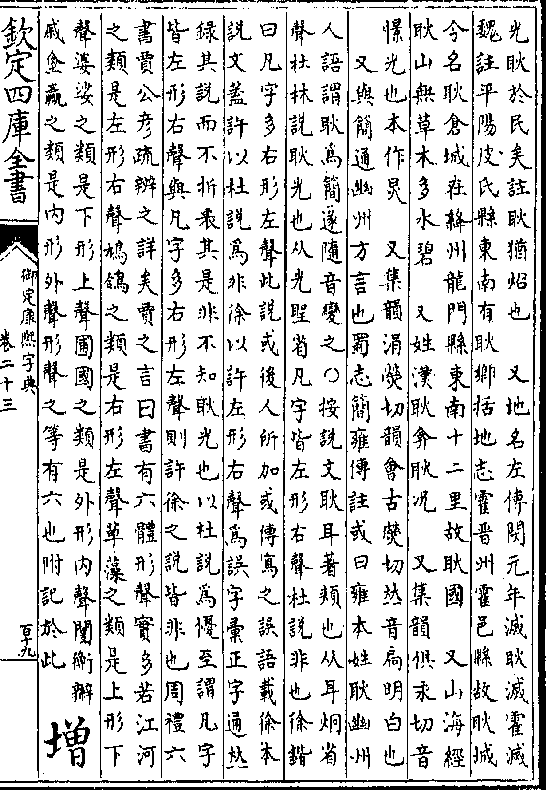 光耿於民矣註耿猶炤也　又地名左傳閔元年滅耿滅霍滅
魏註平陽皮氏縣東南有耿鄉括地志霍晉州霍邑縣故耿城
今名耿倉城在絳州龍門縣東南十二里故耿國　又山海經
耿山無草木多水碧　又姓漢耿弇耿况　又集韻俱永切音
憬光也本作炅　又集韻涓熒切韻會古熒切𠀤音扃明白也
又與簡通幽州方言也蜀志簡雍傳註或曰雍本姓耿幽州
人語謂耿爲簡遂隨音變之〇按說文耿耳著頰也从耳烱省
聲杜林說耿光也从光聖省凡字皆左形右聲杜說非也徐鍇
曰凡字多右形左聲此說或後人所加或傳寫之誤語載徐本
說文蓋許以杜說爲非徐以許左形右聲爲誤字彙正字通𠀤
錄其說而不折衷其是非不知耿光也以杜說爲優至謂凡字
皆左形右聲與凡字多右形左聲則許徐之說皆非也周禮六
書賈公彥疏辦之詳矣賈之言曰書有六體形聲實多若江河
之類是左形右聲鳩鴿之類是右形左聲草藻之類是上形下
聲婆娑之類是下形上聲圃國之類是外形内聲闤衡辦
戚𠎝贏之類是内形外聲形聲之等有六也附記於此
增
欽定四庫全書
御定康熙字典
卷二十三
百九